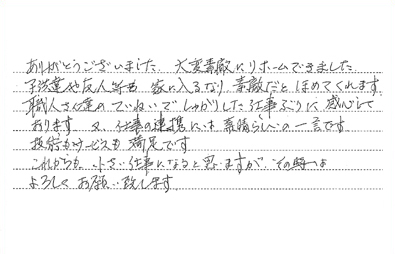 ありがとうございました。大変素敵にリホームできました
子供達や友人等も 家に入るなり 素敵だと ほめてくれます。
職人さん達の ていねいで しっかりした仕事ぶりに 感心して
おります。又、仕事の連携には 素晴らしいの一言です
技術もサービスも 満足です
これからも 小さい仕事になると思いますが、その時は
よろしく お願い致します